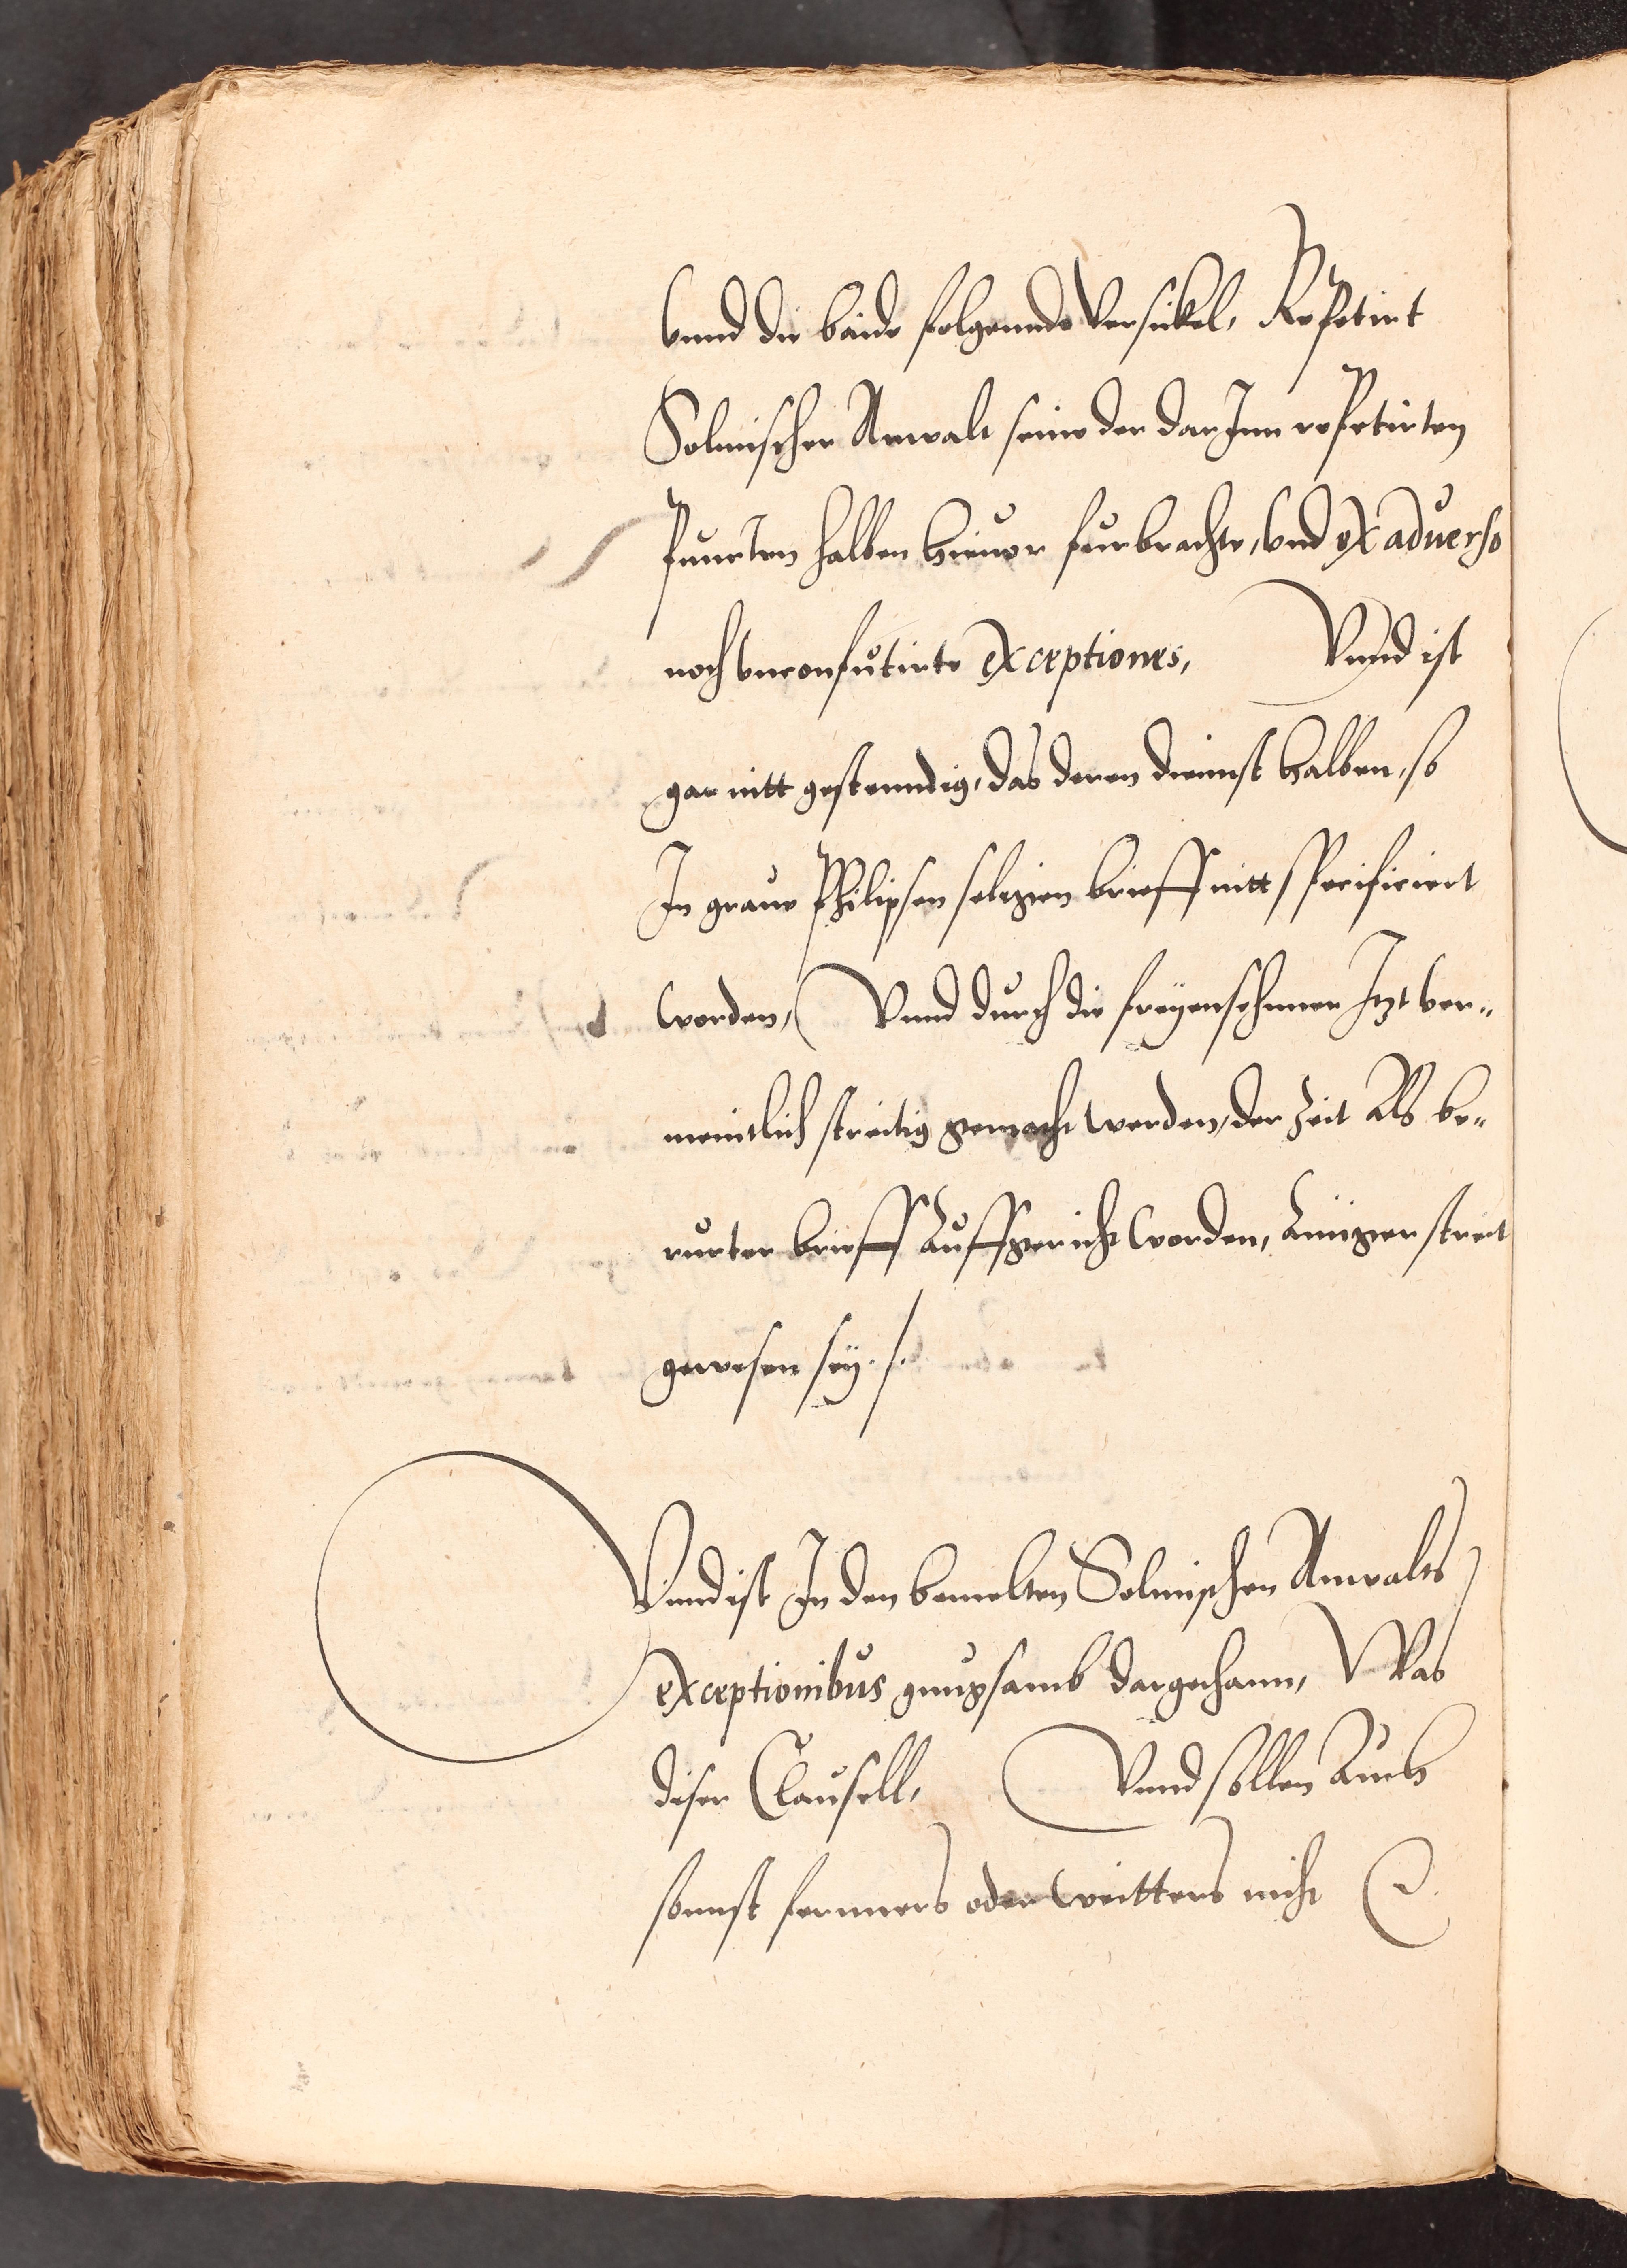 vnnd die baide folgennde versickel, Repetirt
Solmischer Anwalt seine der dar Jnn repetirten
puncten halben hieuor furbrachte, vnd ex aduerso
noch vnconfutirte exceptiones, Vnnd ist
gar nitt gestenndig, das deren diennst halben, so
Jn graue Philipsen seligen brieff nitt specificiert
worden, Vnnd durch die freyenseheimer Jtzt ver¬
meintlich streitig gemacht werden, der Zeit Als be¬
rurter brieff Auffgericht worden, Ainiger streit
gewesen sey ./.
Vnnd ist Jn den bemelten Solmischen Anwalts
exceptionibus gnugsamb dargethann, Was
diser Clausell, Vnnd sollen Auch
sonnst fernners oder weitters nicht &c.